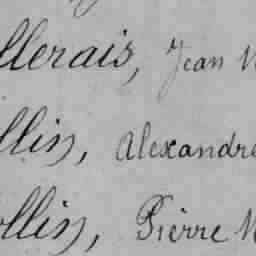 llerais, Jean
llin, Alexandre
ollin, Pierre